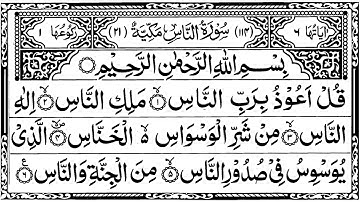 اٰیَاتُهَا ۶ (۱۱۴) سُوْرَةُ النَّاسِ مَكِّيَّةٌ (۲۱) رُكُوْعُهَا ۱
بِسْمِ اللهِ الرَّحْمٰنِ الرَّحِيْمِ
قُلْ اَعُوْذُ بِرَبِّ النَّاسِ ۙ۱ مَلِكِ النَّاسِ ۙ۲ اِلٰهِ
النَّاسِ ۙ۳ مِنْ شَرِّ الْوَسْوَاسِ ۙ۬ الْخَنَّاسِ ۪ۙ۴ الَّذِيْ
يُوَسْوِسُ فِيْ صُدُوْرِ النَّاسِ ۙ۵ مِنَ الْجِنَّةِ وَالنَّاسِ ۶